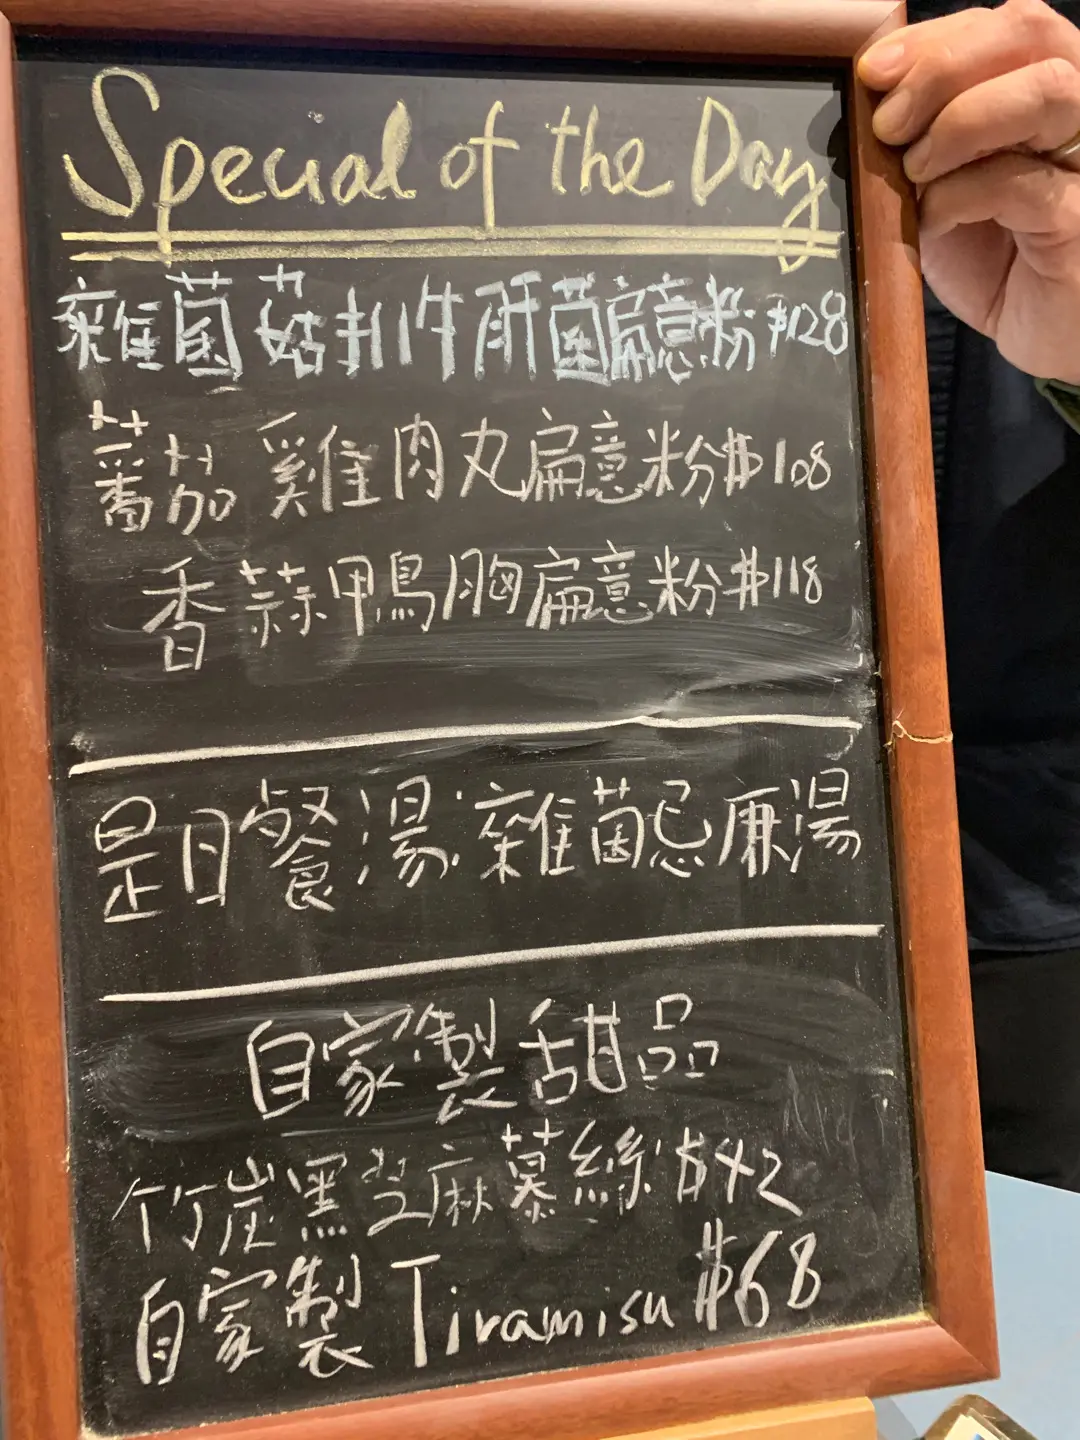 Special of the Day
雜菌菇扒牛肝菌扁意粉 $128
蕃茄雞肉丸扁意粉 $108
香蒜鴨胸扁意粉 $118
是日餐湯:雜菌忌廉湯
自家製甜品
竹炭黑芝麻慕絲 $42
自家製 Tiramisu $68